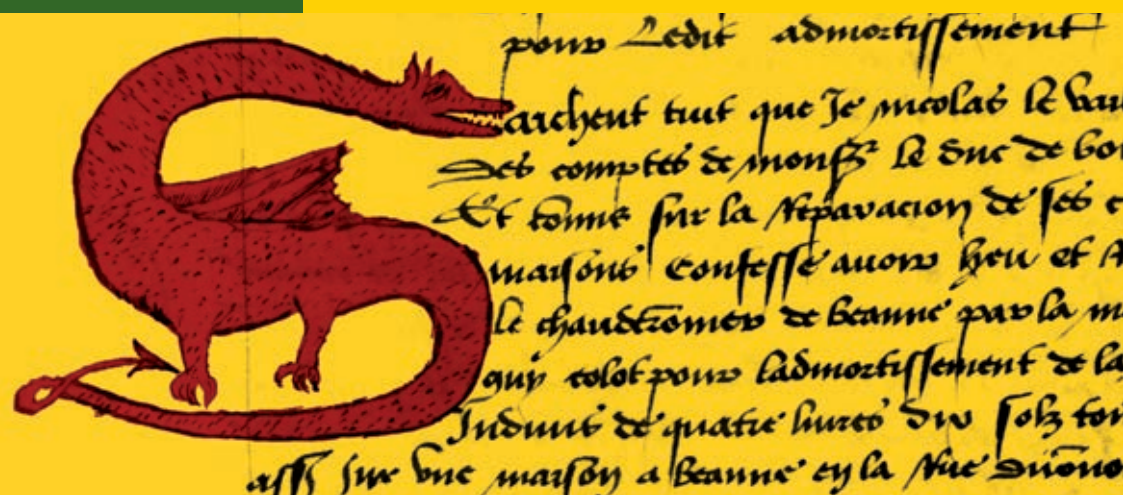 pour Ledit admortissement
Sachent tuit que Je nicolas le
Des comptes de monss le duc de
Et commis sur la Reparacion de ses c
maisons Confesse avoir heu et
Le chauderonnier de beaune par la m
guy colot pour ladmortissement de la
Indivis de quatre livres dix solz
assis sur une maison a beaune en la Rue